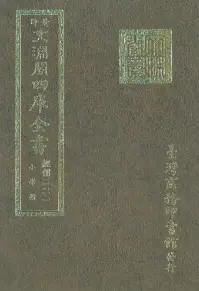 景印
文淵閣四庫全書
經部
小學類
臺灣商務印書館發行